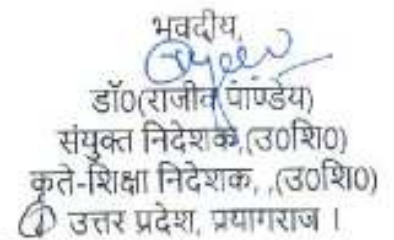 भवदीय,
डॉ0(राजीव पाण्डेय)
संयुक्त निदेशक,(उ0शि0)
कृते-शिक्षा निदेशक, ,(उ0शि0)
उत्तर प्रदेश, प्रयागराज ।